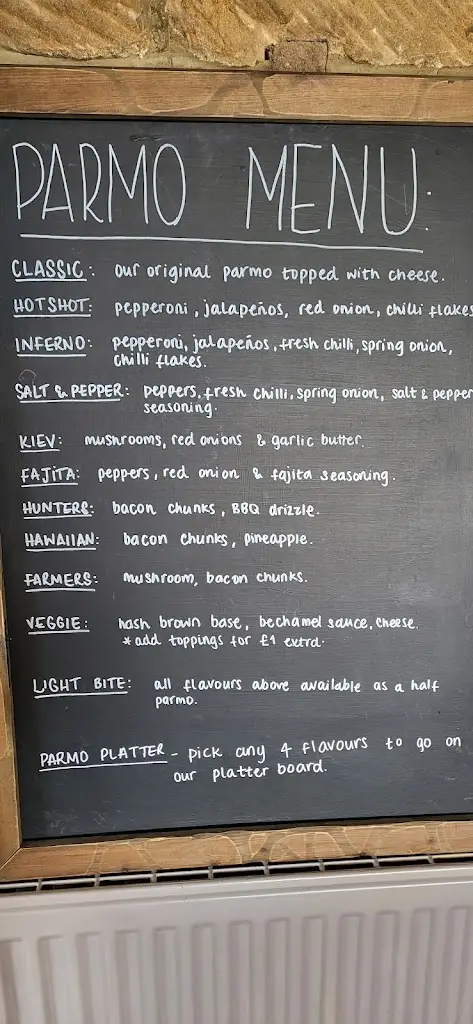 PARMO MENU:
CLASSIC: our original parmo topped with cheese.
HOTSHOT: pepperoni, jalapeños, red onion, chilli flakes
INFERNO: pepperoni, jalapeños, fresh chilli, spring onion,
chilli flakes.
SALT & PEPPER: peppers, fresh chilli, spring onion, salt & pepper
seasoning.
KIEV: mushrooms, red onions & garlic butter.
FAJITA: peppers, red onion & fajita seasoning.
HUNTERS: bacon chunks, BBQ drizzle.
HAWAIIAN: bacon chunks, pineapple.
FARMERS: mushroom, bacon chunks.
VEGGIE: hash brown base, bechamel sauce, cheese.
*add toppings for £1 extra.
LIGHT BITE: all flavours above available as a half
parmo.
PARMO PLATTER - pick any 4 flavours to go on
our platter board.